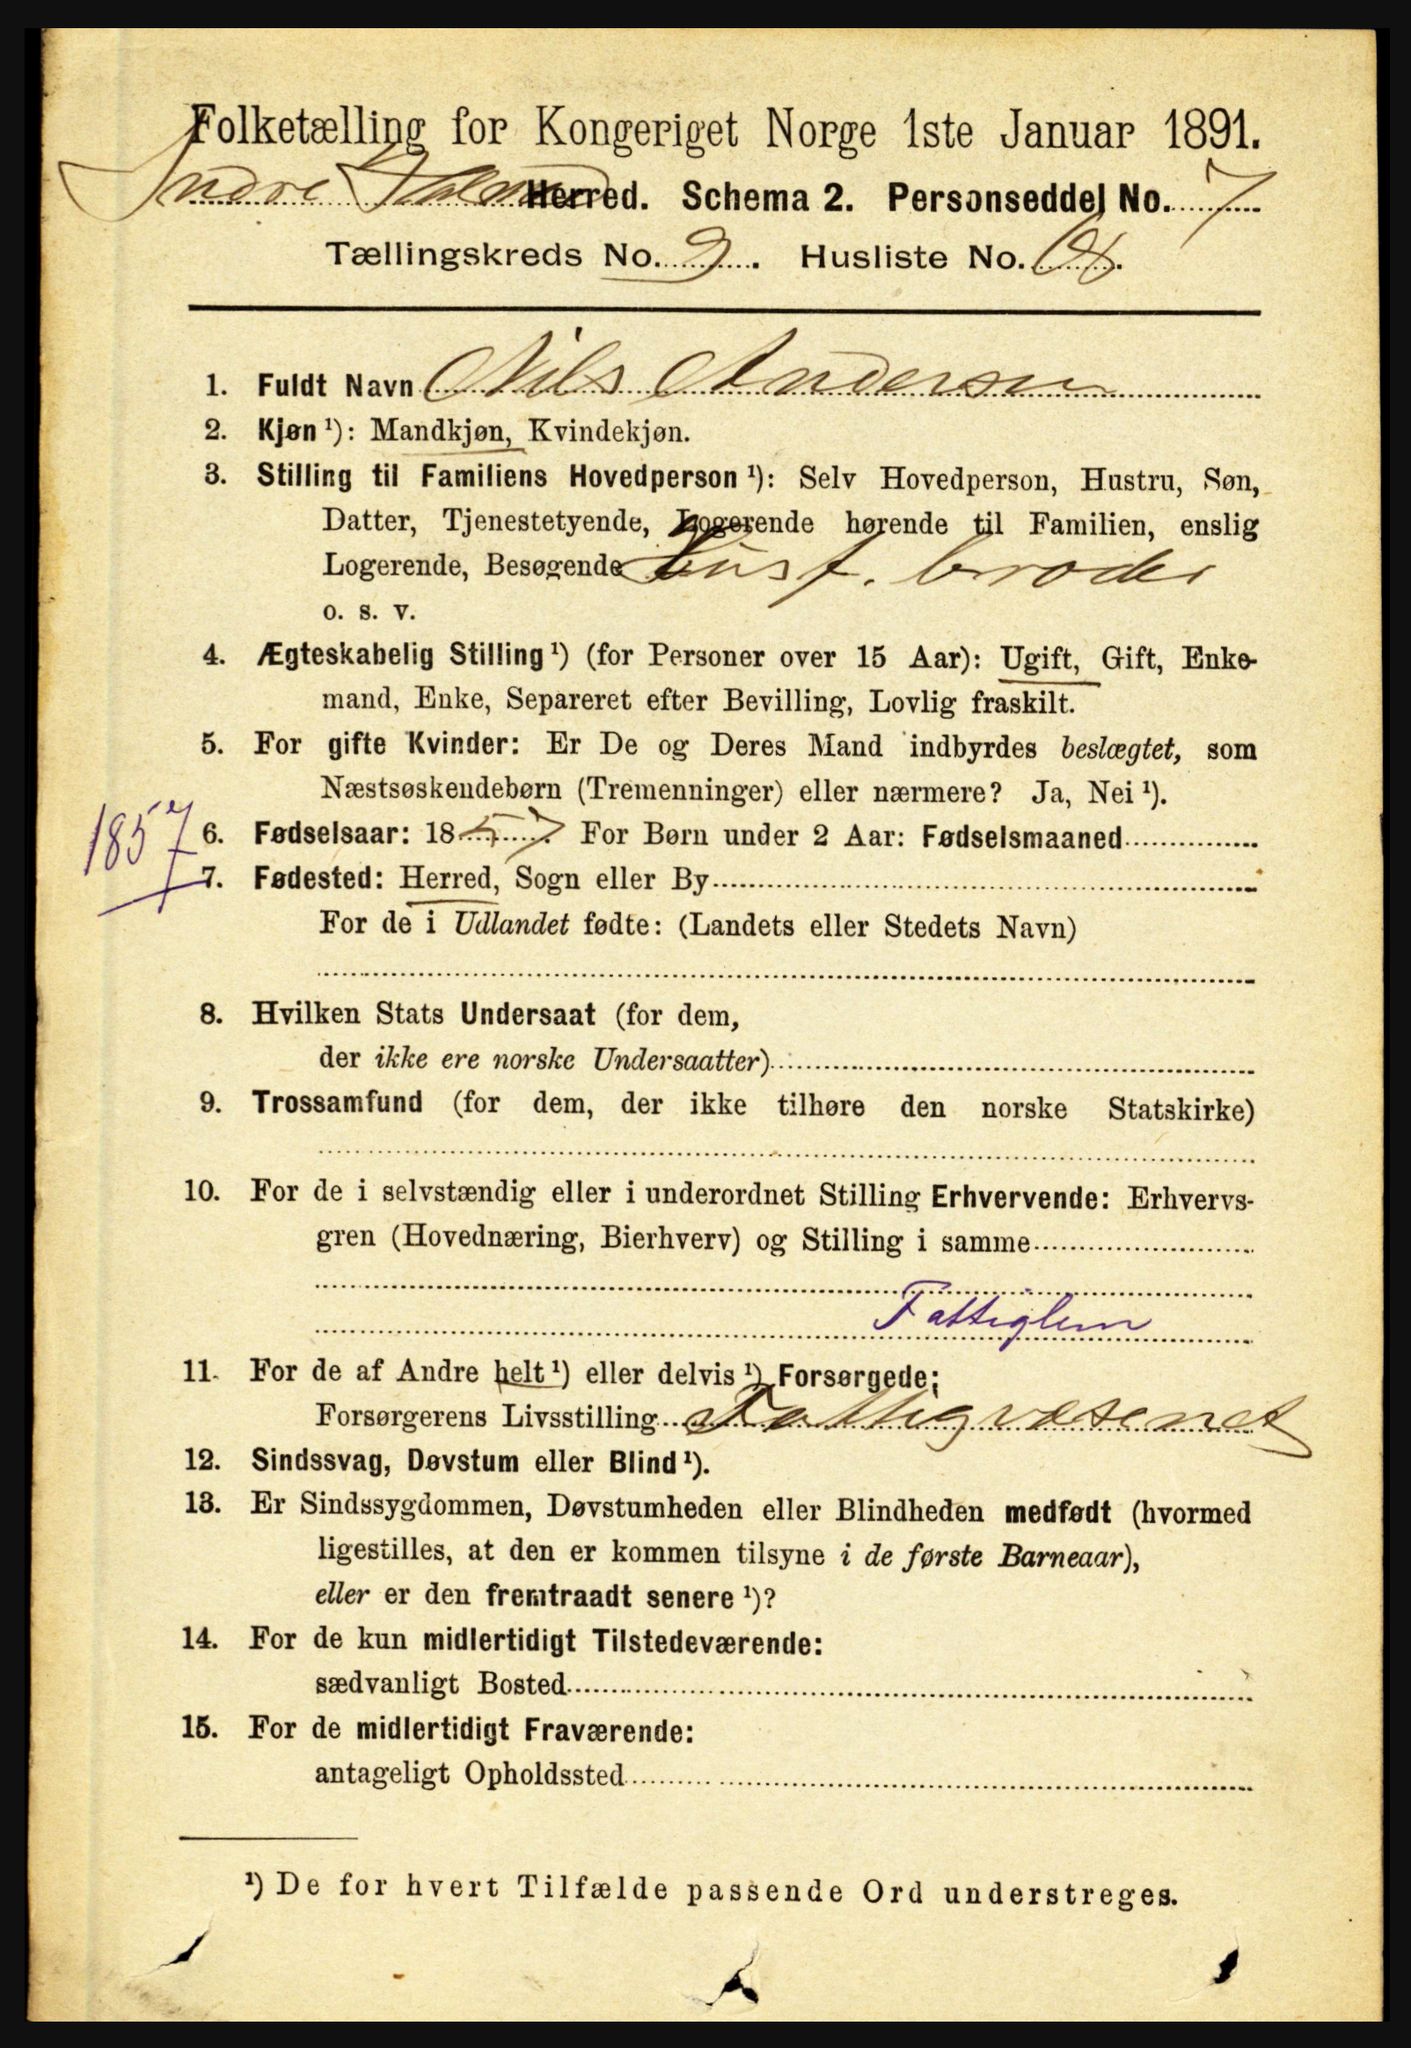 Folketælling for Kongeriget Norge 1ste Januar 1891.
Indre Herred. Schema 2. Personseddel No. 7
Tællingskreds No. 9. Husliste No.
1. Fuldt Navn Nils Andersen
2. Kjøn ¹): Mandkjøn, Kvindekjøn.
3. Stilling til Familiens Hovedperson ¹): Selv Hovedperson, Hustru, Søn,
Datter, Tjenestetyende, Logerende hørende til Familien, enslig
Logerende, Besøgende Husf. broder
o. s. v.
4. Ægteskabelig Stilling ¹) (for Personer over 15 Aar): Ugift, Gift, Enke-
mand, Enke, Separeret efter Bevilling, Lovlig fraskilt.
5. For gifte Kvinder: Er De og Deres Mand indbyrdes beslægtet, som
Næstsøskendebørn (Tremenninger) eller nærmere? Ja, Nei ¹).
1857
6. Fødselsaar: 1857. For Børn under 2 Aar: Fødselsmaaned
7. Fødested: Herred, Sogn eller By
For de i Udlandet fødte: (Landets eller Stedets Navn)
8. Hvilken Stats Undersaat (for dem,
der ikke ere norske Undersaatter)
9. Trossamfund (for dem, der ikke tilhøre den norske Statskirke)
10. For de i selvstændig eller i underordnet Stilling Erhvervende: Erhvervs-
gren (Hovednæring, Bierhverv) og Stilling i samme
Fattiglem
11. For de af Andre helt ¹) eller delvis ¹) Forsørgede;
Forsørgerens Livsstilling Fattigvæsenet
12. Sindssvag, Døvstum eller Blind ¹).
13. Er Sindssygdommen, Døvstumheden eller Blindheden medfødt (hvormed
ligestilles, at den er kommen tilsyne i de første Barneaar),
eller er den fremtraadt senere ¹)?
14. For de kun midlertidigt Tilstedeværende:
sædvanligt Bosted
15. For de midlertidigt Fraværende:
antageligt Opholdssted
¹) De for hvert Tilfælde passende Ord understreges.